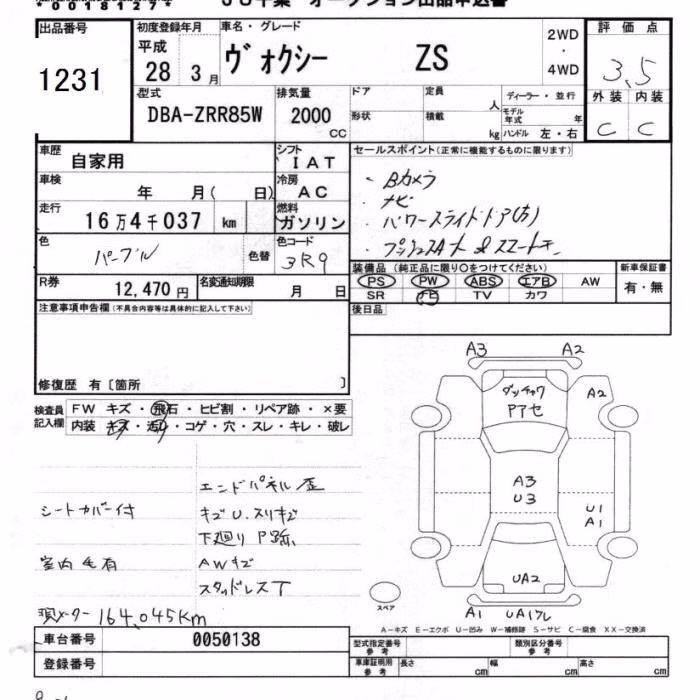 *00181127*
出品番号 初度登録年月 車名・グレード 2WD・4WD 評価点
1231 平成28 3月 ヴォクシー ZS 3.5
型式 排気量 ドア 定員 人 ディーラー・並行 外装 内装
DBA-ZRR85W 2000CC 形状 積載 kg モデル年式 年 ハンドル 左・右 C C
車歴 自家用 シフト IAT セールスポイント(正常に機能するものに限ります)
車検 年 月( 日) 冷房 AC ・Bカメラ
・ナビ
走行 16万4千037 km 燃料 ガソリン ・パワースライドドア(方)
色 パープル 色替 色コード 3R9 ・プッシュスタート &スマートキー
装備品 (純正品に限り○をつけてください) 新車保証書
R券 12,470円 名変通知期限 月 日 PS PW ABS エアB AW 有・無
SR ナビ TV カワ
注意事項申告欄(不具合内容等は具体的に記入して下さい) 後日品
修復歴 有〔箇所 〕
検査員記入欄 FW キズ・飛石・ヒビ割・リペア跡・×要
内装 キズ・汚れ・コゲ・穴・スレ・キレ・破レ
A3 A2
ダッチャク A2
Pアセ
エンドパネル歪 A3
U3
シートカバー付 キズU.スリキズ U1
A1
下廻りP跡
室内毛有 AWキズ
スタッドレスT UA2
スペア A1 UA1ワレ
現メーター164,045km
A-キズ E-エクボ U-凹み W-補修跡 S-サビ C-腐食 XX-交換済
車台番号 0050138 型式指定番号 参考 類別区分番号 参考
登録番号 車庫証明用 参考 長さ cm 幅 cm 高さ cm